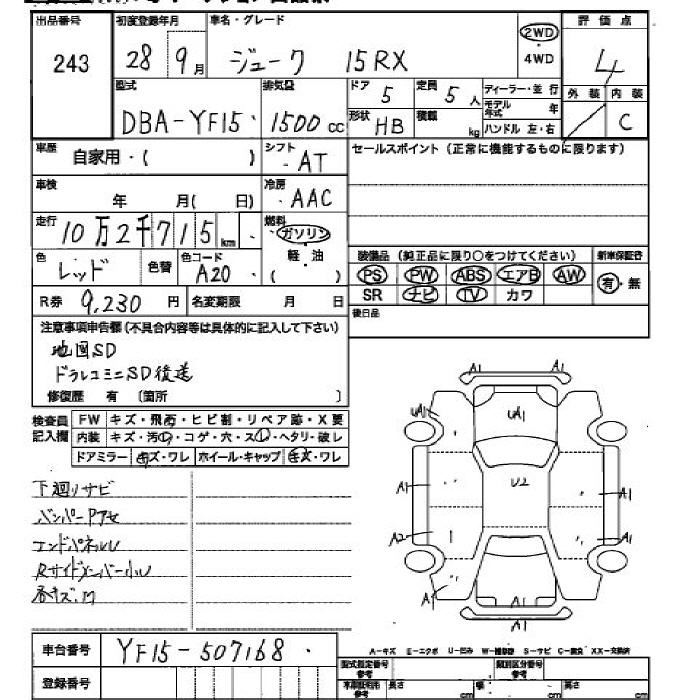 出品番号 初度登録年月 車名・グレード 評価点
243 28 9月 ジューク 15RX 2WD 4WD 4
型式 排気量 ドア 5 定員 5人 ディーラー・並行 外装 内装
モデル年式 年
DBA-YF15 1500cc 形状 HB 積載 kg ハンドル 左・右 C
車歴 自家用・( ) シフト AT セールスポイント (正常に機能するものに限ります)
車検 年 月( 日) 冷房 AAC
走行 10万2千715km 燃料 ガソリン
軽・油
( )
色 レッド 色替 色コード A20 装備品 (純正品に限り○をつけてください) 新車保証書
PS PW ABS エアB AW 有・無
R券 9,230円 名変期限 月 日 SR ナビ TV カワ
後日品
注意事項申告欄 (不具合内容等は具体的に記入して下さい)
地図SD
ドラレコミニSD後送
修復歴 有 〔箇所 〕
検査員記入欄 FW キズ・飛石・ヒビ割・リペア跡・X要
内装 キズ・汚・コゲ・穴・ス・ヘタリ・破レ
ドアミラー キズ・ワレ ホイール・キャップ キズ・ワレ
下廻りサビ
バンパーPアセ
エンドパネルU
Rサイドメンバー小U
各キズ.凹
A1
A1
UA1
UA1
U2
A1
A1
A2
A1
A1
A1
A1
車台番号 YF15-507168
A-キズ E-エクボ U-凹み W-補修跡 S-サビ C-腐食 XX-交換済
登録番号 型式指定番号 参考 類別区分番号 参考
車両証明用 参考 長さ cm 幅 cm 高さ cm